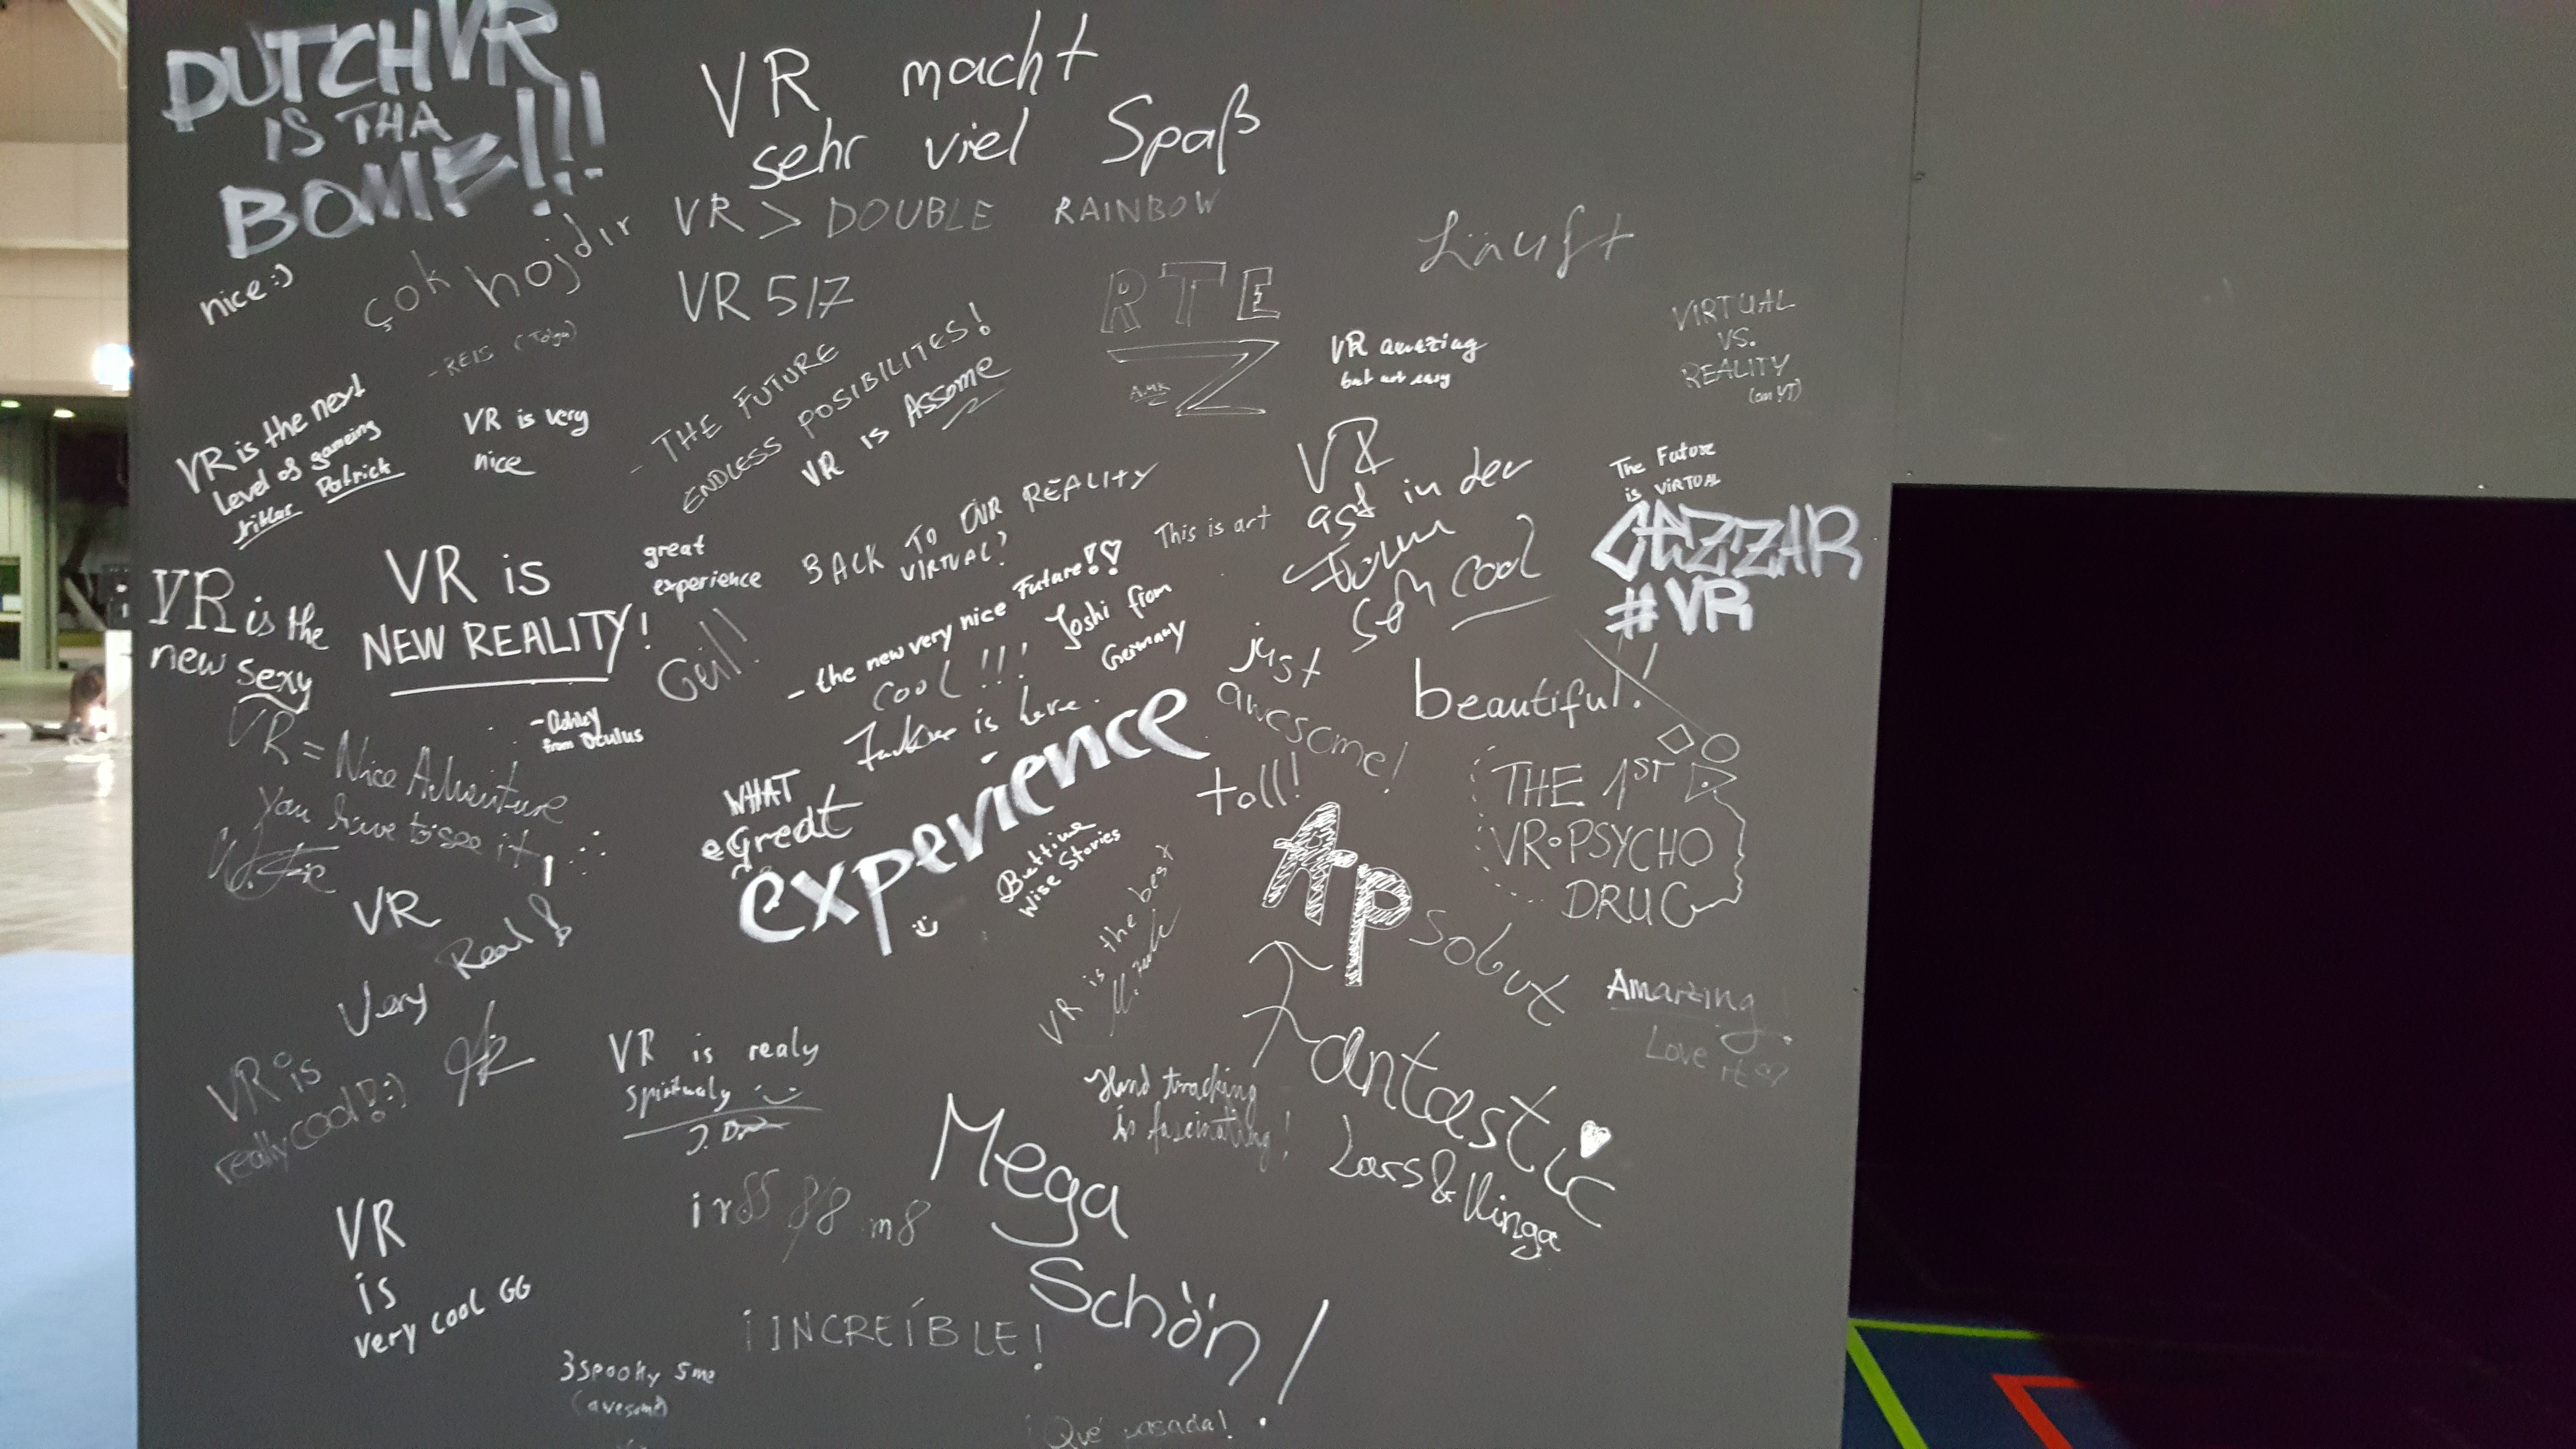 DUTCHVR
IS THA
BOMB!!!
VR macht
sehr viel Spaß
VR > DOUBLE RAINBOW
nice :)
çok hojdır
- REIS (Tolga)
VR 5/7
RTE
Läuft
VIRTUAL
VS.
REALITY
(on YT)
VR amazing
but not easy
- THE FUTURE
ENDLESS POSIBILITES!
VR is Assome
VR is the next
Level of gameing
Patrick
VR is very
nice
BACK TO OUR REALITY
VIRTUAL?
This is art
VR
ast in der
Form
Seh cool
The Future
is VIRTUAL
#VR
great
experience
VR is
NEW REALITY!
- Ashley
from Oculus
VR is the
new sexy
Geil!
- the new very nice Future!!
cool!!! Joshi from
Germany
Future is here.
just
awesome!
beautiful!
toll!
THE 1ST
VR•PSYCHO
DRUG
VR = Nice Adventure
you have to see it!
WHAT
a Great
experience
Bettina
Wise Stories
VR is the best
Apsolut
Amazing!
Love it
VR
Very Real!
VR is
really cool!:)
VR is realy
spiritualy
Hand tracking
is fascinating!
Fantastic
Lars & Kinga
Mega
Schön!
ir88 8/8 m8
VR
is
very cool GG
¡INCREÍBLE!
3spooky 5me
(avesome)
¡Qué pasada!